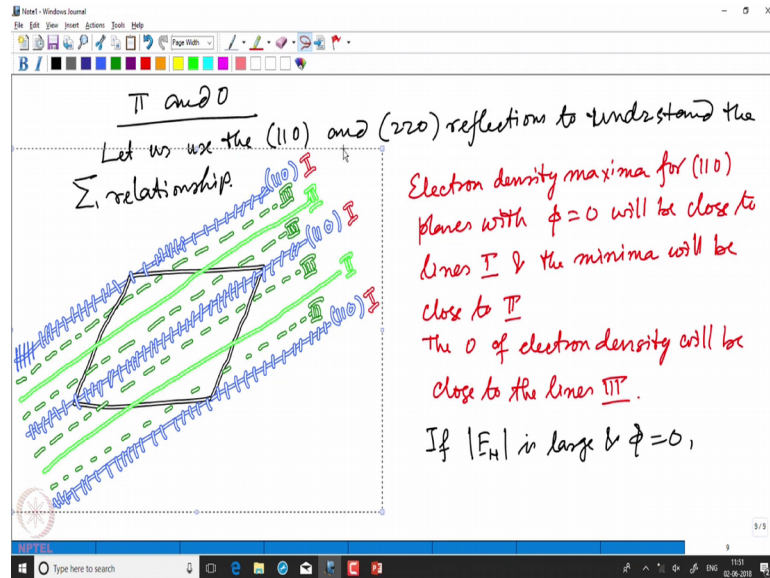 Note1 - Windows Journal
File Edit View Insert Actions Tools Help
Page Width
B I
π and 0
Let us use the (110) and (220) reflections to understand the
Σ1 relationship.
(110) I
II
III
(110) I
III
II
III
III
(110) I
Electron density maxima for (110)
planes with ϕ = 0 will be close to
lines I & the minima will be
close to II
The 0 of electron density will be
close to the lines III.
If |EH| is large & ϕ = 0,
9/9
NPTEL
9
Type here to search
ENG
11:51
02-06-2018